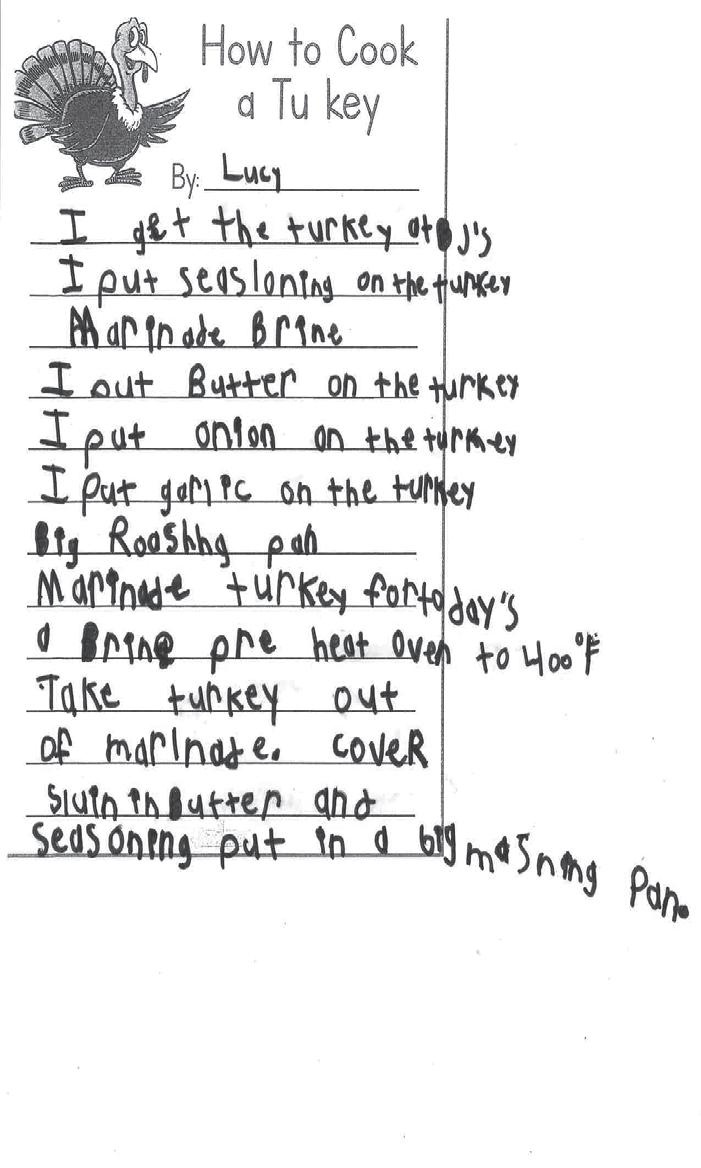 How to Cook
a Tu key
By: Lucy
I get the turkey at BJ's
I put seasloning on the turkey
Marinade Brine
I out Butter on the turkey
I put onion on the turkey
I put garlic on the turkey
Big Rooshhg pan
Marinade turkey for to day's
a Brine pre heat oven to 400°F
Take turkey out
of marinate. cover
in Butter and
seasoning put in a big pan.